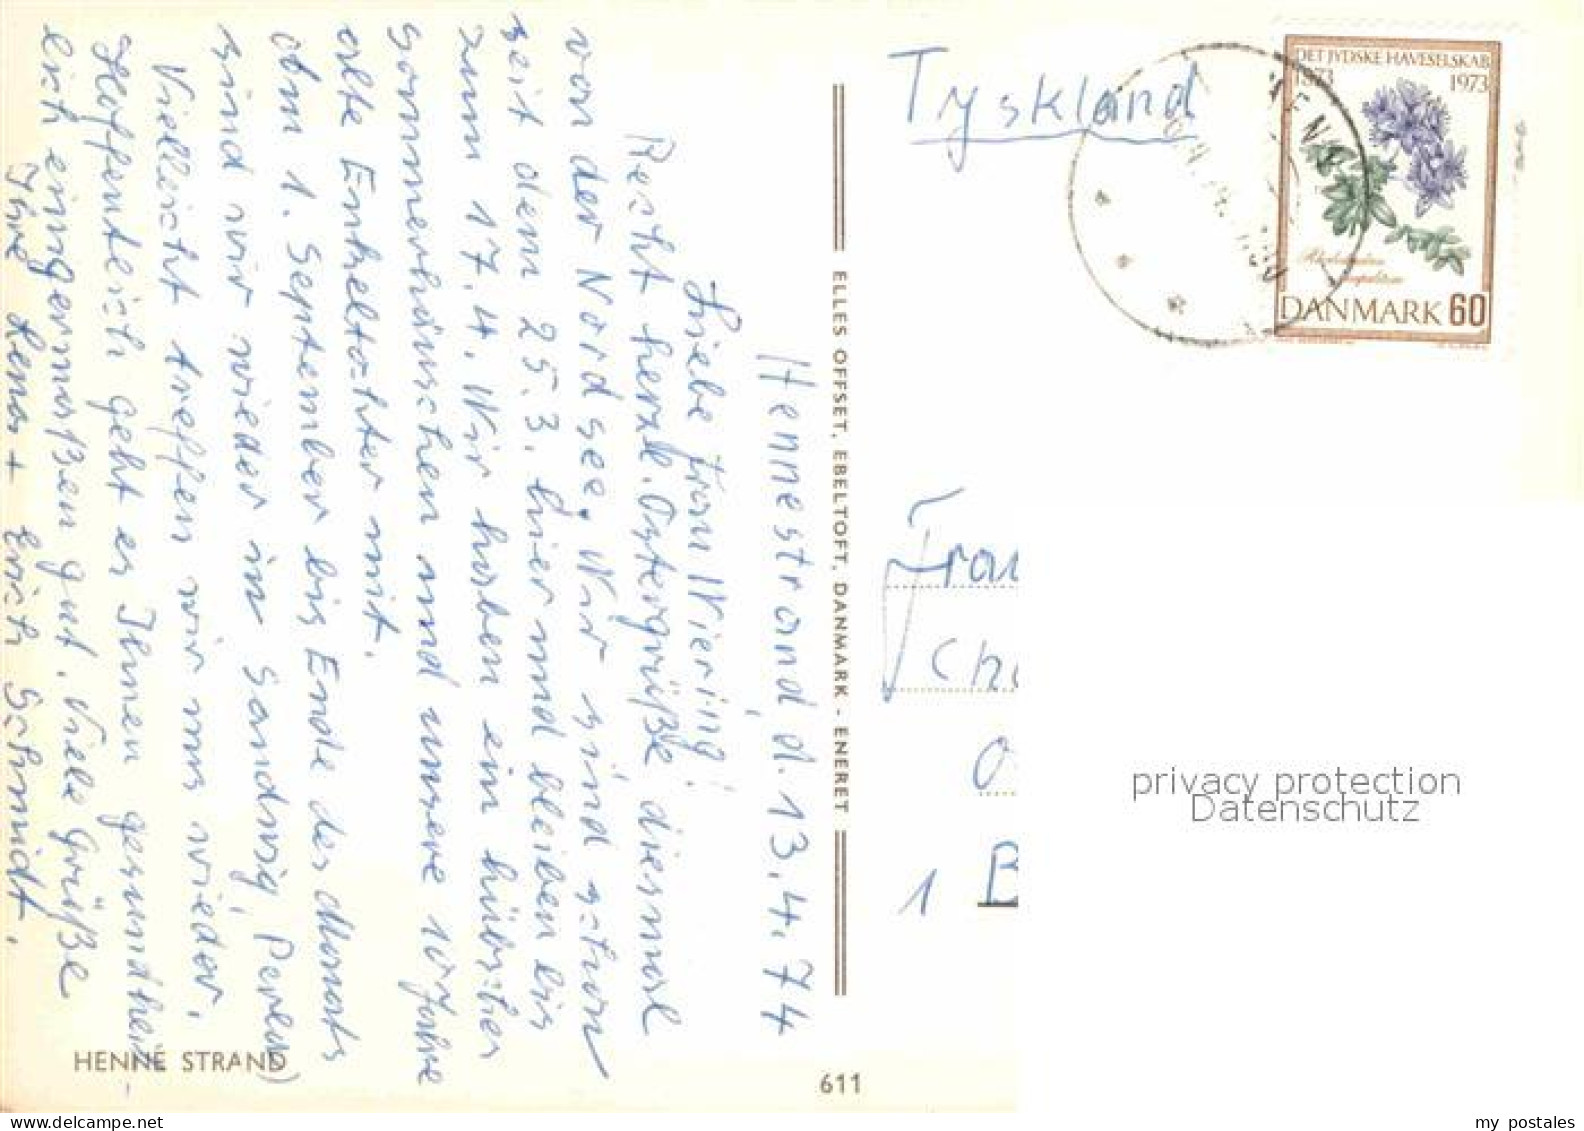 Hennestrand, d. 13.4.74
Liebe Frau Wiering!
Recht herzl. Ostergrüße diesmal
von der Nordsee. Wir sind schon
seit dem 25.3. hier und bleiben bis
zum 17.4. Wir haben ein hübsches
Sommerhäuschen und unsere 10 Jahre
alte Enkeltochter mit.
Abm 1. September bis Ende des Monats
sind wir wieder in Sandwig, Perlen)
Vielleicht treffen wir uns wieder.
Hoffentlich geht es Ihnen gesundheit-
lich einigermaßen gut. Viele Grüße
Ihre Lena + Erich Schmidt.
HENNE STRAND
611
ELLES OFFSET, EBELTOFT, DANMARK - ENERET
Tyskland
DET JYDSKE HAVESELSKAB
1873 1973
DANMARK 60
Frau
Ch
1 B
privacy protection
Datenschutz
my postales